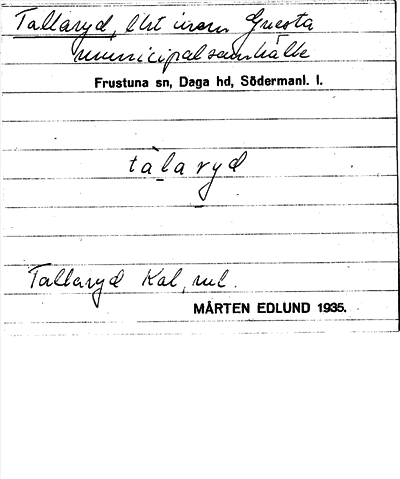 Tallaryd, lht inom Gnesta
municipalsamhälle
Frustuna sn, Daga hd, Södermanl. l.
tàlaryd
Tallaryd Kal, rul.
MÅRTEN EDLUND 1935.